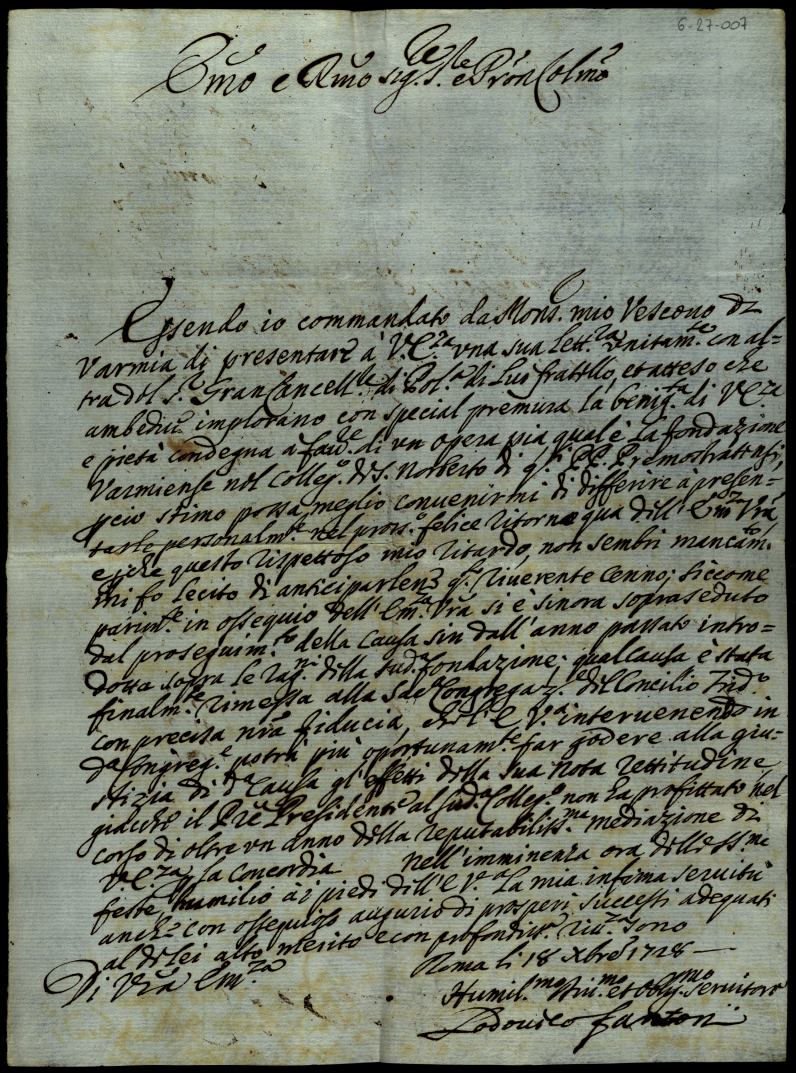 6-27-007
Em̃o e Rm̃o Sig.re S.re e Prõn Colmõ
Essendo io commandato da Mons. mio Vescouo di
Varmia di presentare à V.E.za una sua lett.ra unitam.te con al=
tra del S.r Gran Cancell.re di Pol.a di Lui fratello, et atteso che
ambedue implorano con special premura la benig.tà di V.E.za
e pietà condegna à fau.re di un opera pia qual'è la fondazione
Varmiense nel Colleg.o di S. Norberto di q.ti PP. Premostratensi,
perciò stimo possa meglio conuenirmi di differire à presen=
tarle personalm.te nel pross. felice ritorno qua dell' Em.za Vrã
e che questo rispettoso mio ritardo, non sembri mancam.to,
mi fo lecito di anticiparlene q.o riuerente cenno; siccome
parim.te in ossequio dell' Em.za Vrã si è sinora sopraseduto
dal proseguim.to della Causa sin dall'anno passato intro=
dotta sopra le rag.ni della sud.a fondazione; qual Causa è stata
finalm.te rimessa alla Sac.a Congregaz.e del Concilio Trid.o
con precisa nrã fiducia, che l' E.V.a interuenendo in
d.a Congreg.e potrà più oportunam.te far godere alla giu=
stizia di d.a Causa gl'effetti della sua nota rettitudine,
giacche il Prẽ Presidente al sud.o Colleg.o non ha profittato nel
corso di oltre un anno della reputabiliss.ma mediazione di
V.E.za, p la concordia nell'imminenza ora delle SS.me
feste, humilio à i piedi dell' E.V.a la mia infima seruitù
anche con ossequioso augurio di prosperi successi adequati
al di lei alto merito e con profondiss.a riu.za sono
Di Vrã Em.za
Roma li 18 Xbre 1728
Humil.mo Diu.mo et Obblig.mo Seruitore
Lodouico Fantoni